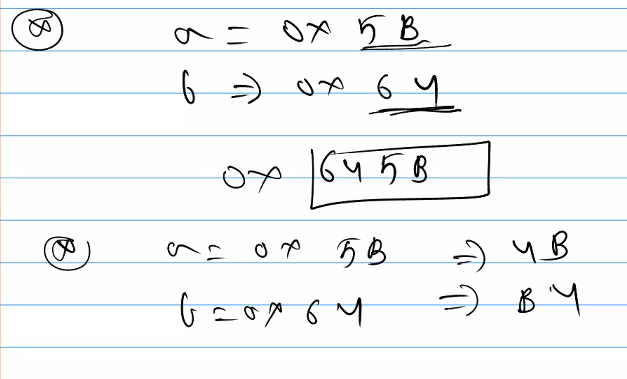 a = 0x 5B
b => 0x 64
0x 645B
a = 0x 5B => 4B
b = 0x 64 => B4